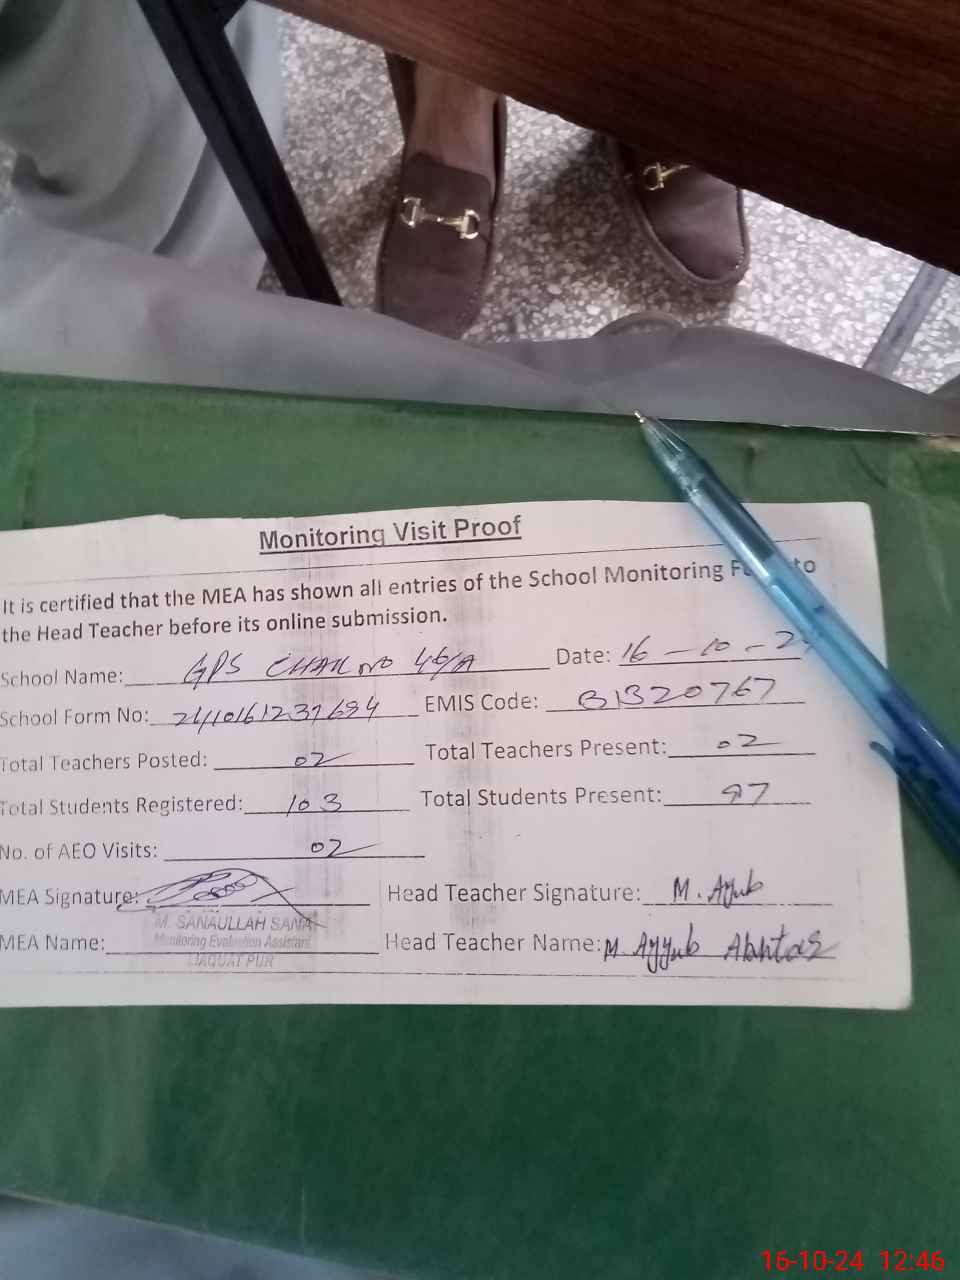 Monitoring Visit Proof
It is certified that the MEA has shown all entries of the School Monitoring to
the Head Teacher before its online submission.
School Name: GPS CHAK NO 46/A Date: 16-10-24
School Form No: EMIS Code: 31320767
Total Teachers Posted: 02 Total Teachers Present: 02
Total Students Registered: 103 Total Students Present: 97
No. of AEO Visits: 02
MEA Signature: Head Teacher Signature: M. Ayub
M. SANAULLAH SANA
MEA Name: Monitoring Evaluation Assistant Head Teacher Name: M. Ayyub Akhtar
LIAQUAT PUR
16-10-24 12:46